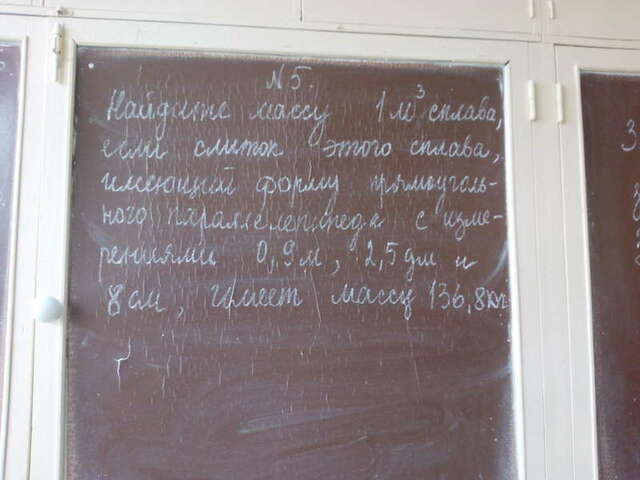 №5.
Найдите массу 1м³ сплава,
если слиток этого сплава,
имеющий форму прямоуголь-
ного параллелепипеда с изме-
рениями 0,9м, 2,5дм и
8см, имеет массу 136,8кг
3